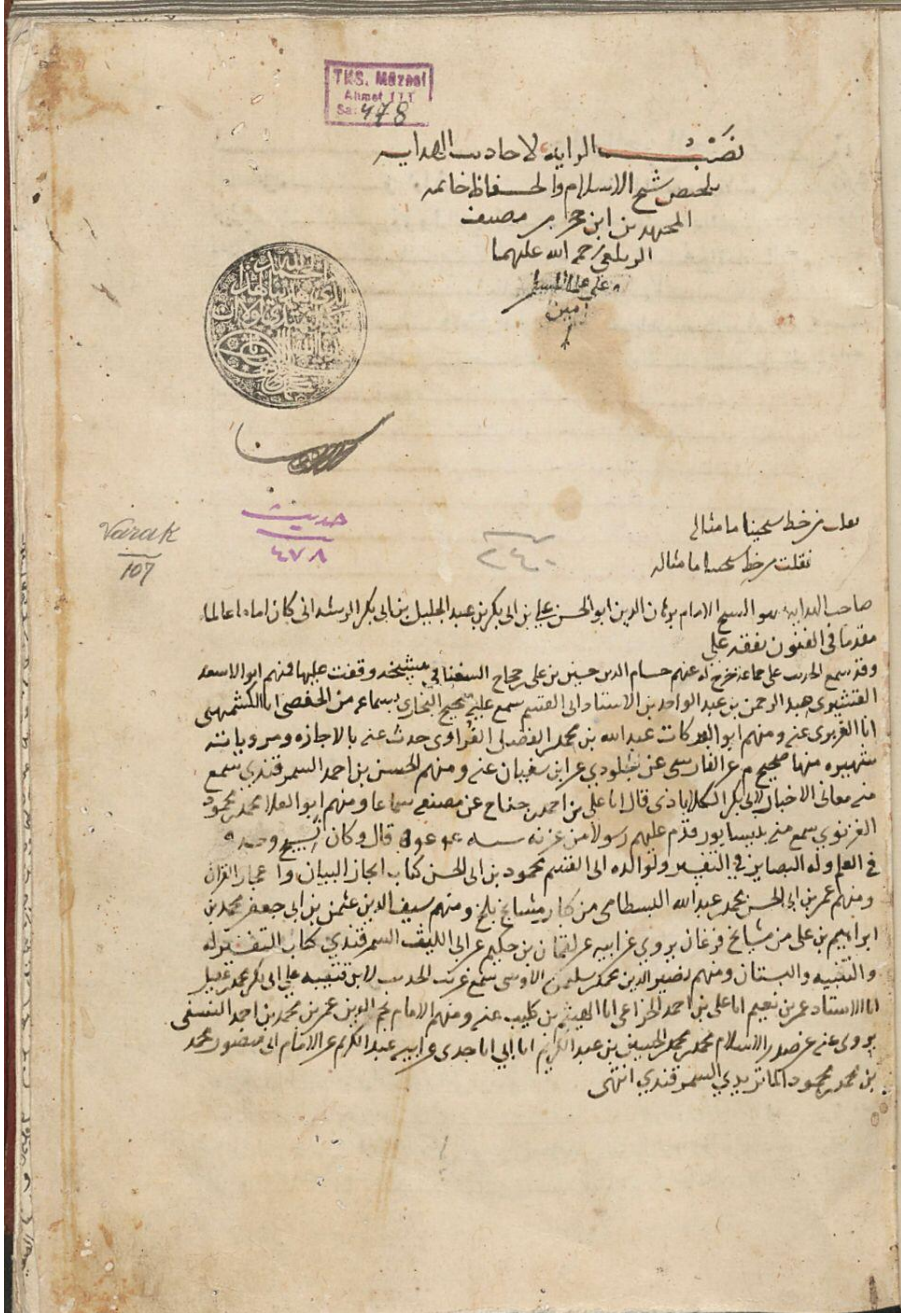 TKS. Müzesi
Ahmet III
Sa: 478
نصب الراية لاحاديث الهدايه
تلخيص شيخ الاسلام والحفاظ خاتمه
المجتهدين ابن حجر مصنف
الزيلعي رحمه الله عليهما
امين
حديث
٤٧٨
Varak
107
٢٤٠
نقلت من خط شيخنا ما مثاله
نقلت من خط شيخنا ما مثاله
صاحب الهدايه هو الشيخ الامام برهان الدين ابو الحسن علي بن ابى بكر بن عبد الجليل بن ابى بكر الرشدانى كان اماما عالما
مقدما فى الفنون تفقه على
وقد سمع الحديث على جماعة خرج له عنهم حسام الدين حسين بن على بن حجاج السغناقي مشيخه وقفت عليها فمنهم ابو الاسعد
القشيرى هبه الرحمن بن عبد الواحد بن الاستاد ابى القسم سمع عليه صحيح البخارى بسماعه من الحفصى انا الكشميهنى
انا الفربرى عنه ومنهم ابو البركات عبد الله بن محمد بن الفضل الفراوى حدث عنه بالاجازه ومروياته
شهيره منها صحيح م عن الفارسى عن الجلودي عن ابن سفيان عنه ومنهم الحسن بن احمد السمرقندي سمع
منه معانى الاخبار لابى بكر الكلاباذى قال انا على بن احمد بن جناح عن مصنفه سماعا ومنهم ابو العلا محمد بن محمود
الغزنوي سمع منه بنيسابور قدم عليهم رسولا من غزنه سنه قال وكان نسيج وحده
فى العلم وله البصاير في التفسير ولوالده ابى القسم محمود بن ابى الحسن كتاب ايجاز البيان واعجاز القران
ومنهم عمر بن ابى الحسن محمد بن عبد الله البسطامى من كبار مشايخ بلخ ومنهم سيف الدين عثمن بن ابى جعفر محمد بن
ابراهيم بن على من مشايخ فرغانه يروي عن ابيه عن لقمان بن حكيم عن ابى الليث السمرقندي كتاب التفسير له
والتنبيه والبستان ومنهم نصير الدين محمد بن سليمن الاوشى سمع غريب الحديث لابن قتيبه على ابى بكر محمد بن عقيل
انا الاستاد عمر بن نعيم انا على بن احمد الخزاعى انا الهيثم بن كليب عنه ومنهم الامام نجم الدين عمر بن محمد بن احمد النسفى
يروى عنه عن صدر الاسلام محمد بن محمد بن الحسين بن عبد الكريم انا ابي انا جدى عن ابيه عبد الكريم عن الامام ابى منصور محمد
بن محمد بن محمود الماتريدي السمرقندي انتهى